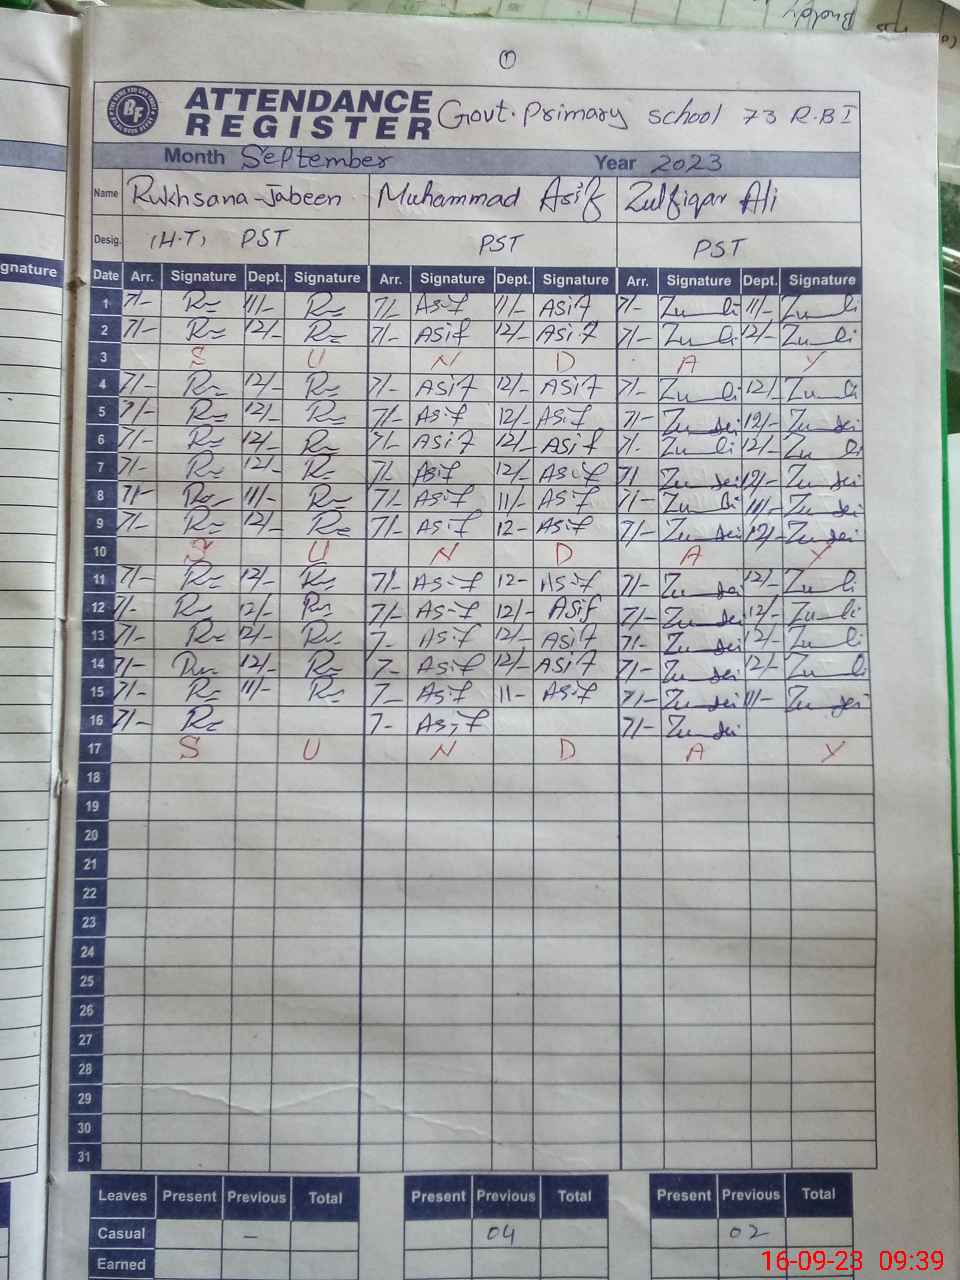 Brody
①
ATTENDANCE
REGISTER
Govt. Primary school 73 R.B I
BF
Month September Year 2023
Name Rukhsana Jabeen Muhammad Asif Zulfiqar Ali
Desig. (H.T) PST PST PST
gnature
Date Arr. Signature Dept. Signature Arr. Signature Dept. Signature Arr. Signature Dept. Signature
1 7/- 11/- 7/- Asif 11/- Asif 7/- 11/-
2 7/- 12/- 7/- Asif 12/- Asif 7/- 12/-
3 S U N D A Y
4 7/- 12/- 7/- Asif 12/- Asif 7/- 12/-
5 7/- 12/- 7/- Asif 12/- Asif 7/- 12/-
6 7/- 12/- 7/- Asif 12/- Asif 7/- 12/-
7 7/- 12/- 7/- Asif 12/- Asif 7/ 12/-
8 7/- 11/- 7/- Asif 11/- Asif 7/- 11/-
9 7/- 12/- 7/- Asif 12- Asif 7/- 12/-
10 S U N D A Y
11 7/- 12/- 7/- Asif 12- Asif 7/- 12/-
12 7/- 12/- 7/- Asif 12/- Asif 7/- 12/-
13 7/- 12/- 7- Asif 12/- Asif 7/- 12/-
14 7/- 12/- 7- Asif 12/- Asif 7/- 12/-
15 7/- 11/- 7- Asif 11- Asif 7/- 11/-
16 7/- 7- Asif 7/-
17 S U N D A Y
18
19
20
21
22
23
24
25
26
27
28
29
30
31
Leaves Present Previous Total Present Previous Total Present Previous Total
Casual - 04 02
Earned
16-09-23 09:39